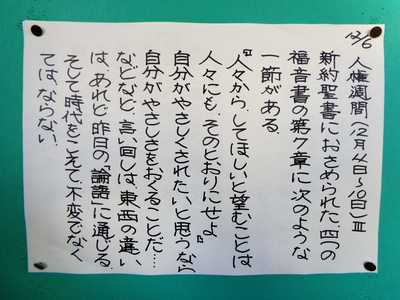 12/6
人権週間(12月4日〜10日)Ⅲ
新約聖書におさめられた四つの
福音書の第7章に次のような
一節がある。
『人々から、してほしいと望むことは
人々にも、そのとおりにせよ』
自分がやさしくされたいと思うなら
自分がやさしさをおくることだ…
などなど、言い回しは、東西の違い
は、あれど昨日の「論語」に通じる。
そして時代をこえて、不変でなく
ては、ならない。